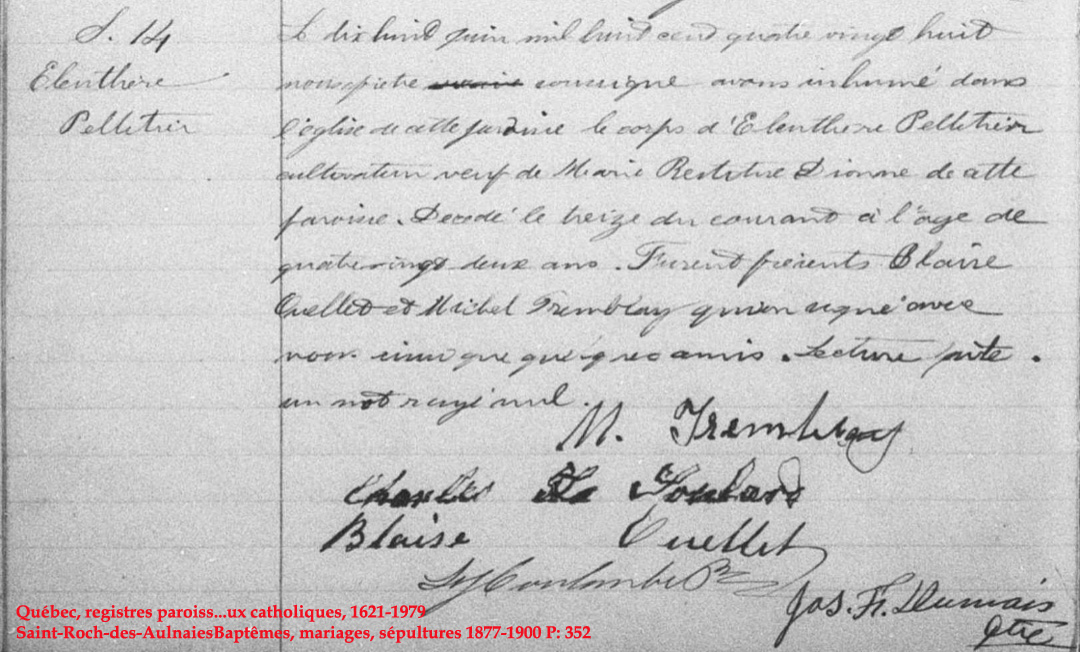 S. 14
Eleuthère
Pelletier
Le dix huit juin mil huit cent quatre vingt huit
nous prêtre soussigné avons inhumé dans
l'église de cette paroisse le corps d'Eleuthère Pelletier
cultivateur veuf de Marie Restitue Dionne de cette
paroisse. Décédé le treize du courant à l'âge de
quatre vingt deux ans. Furent présents Blaise
Ouellet et Michel Tremblay qui ont signé avec
nous ainsi que quelques amis. Lecture faite.
un mot rayé nul.
M. Tremblay
Charles
Blaise Ouellet
Coulombe Ptre
Jos. Ft. Dumais
ptre
Québec, registres paroiss...ux catholiques, 1621-1979
Saint-Roch-des-AulnaiesBaptêmes, mariages, sépultures 1877-1900 P: 352